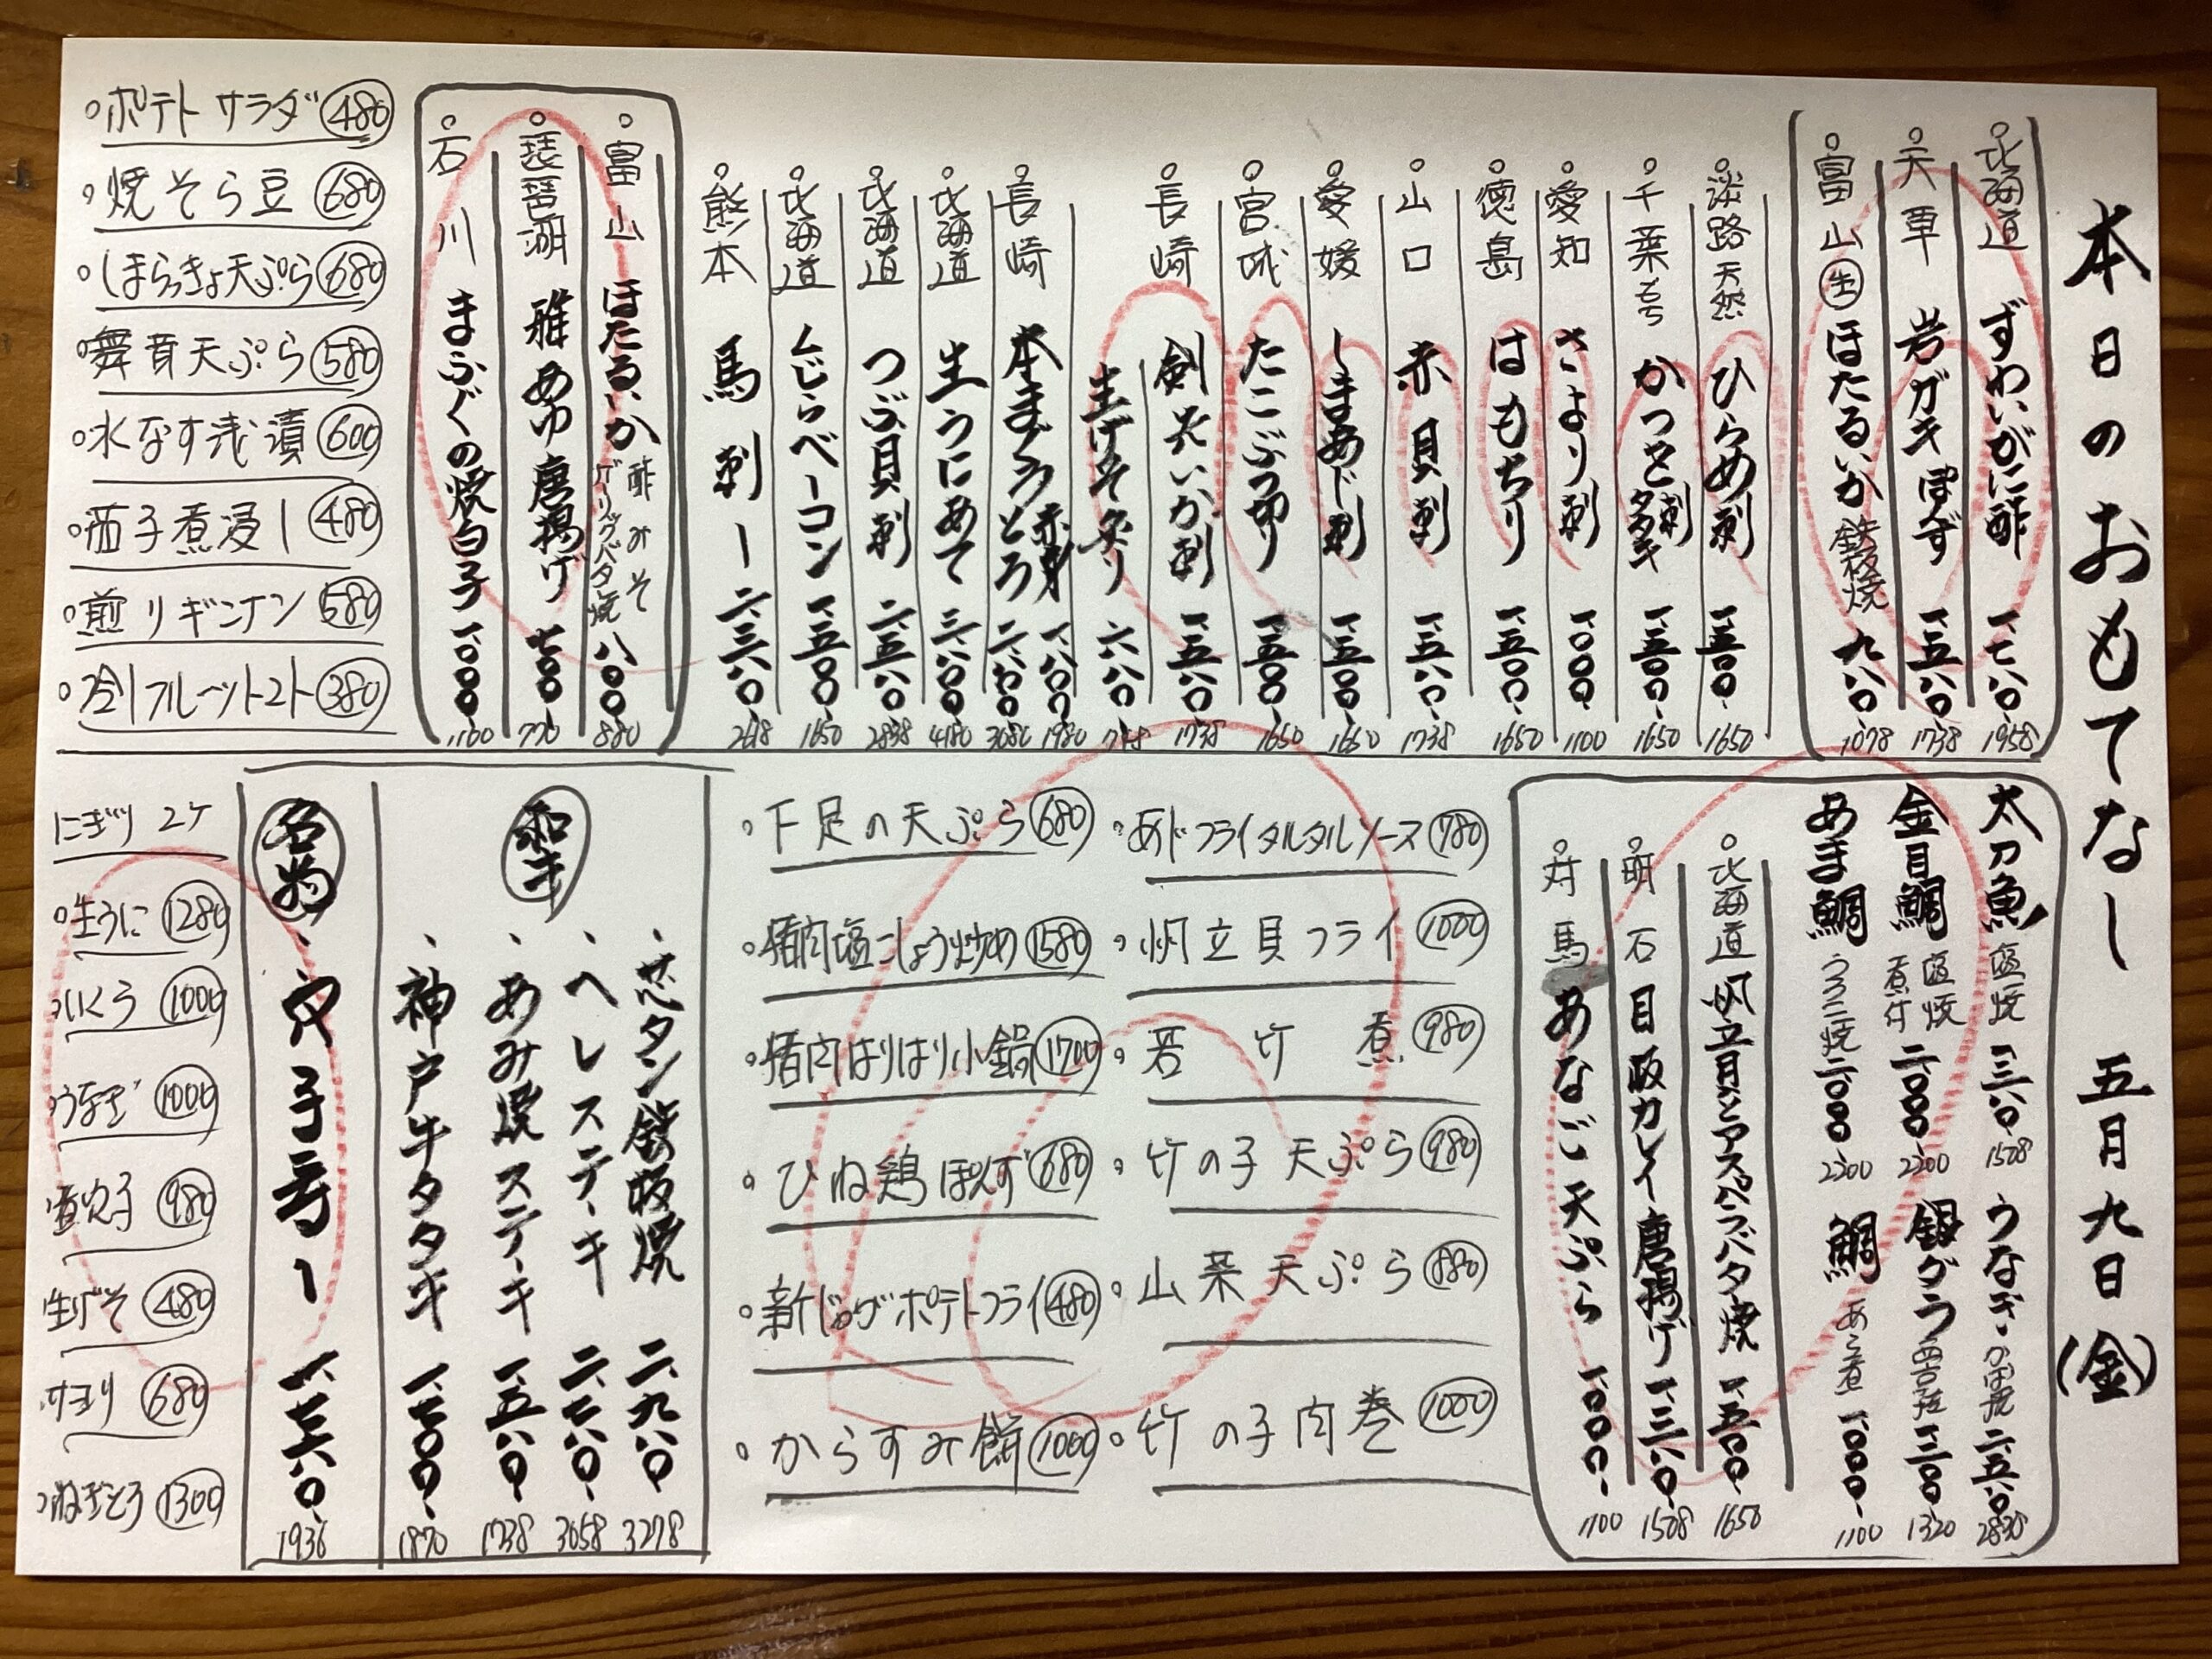 本日のおもてなし 五月九日(金)
北海道 ずわいがに酢 一、七八〇 1958
天草 岩ガキぽんず 一、五八〇 1738
富山 生 ほたるいか 鉄板焼 九八〇 1078
淡路 天然 ひらめ刺 一、五〇〇 1650
千葉 もち かつを 刺 タタキ 一、五〇〇 1650
愛知 さより刺 一、〇〇〇 1100
徳島 はもちり 一、五〇〇 1650
山口 赤貝刺 一、五八〇 1738
愛媛 しまあじ刺 一、五〇〇 1650
宮城 たこぶつ切り 一、五〇〇 1650
長崎 剣先いか刺 一、五八〇 1738
生げそ炙り 六八〇 748
長崎 本まぐろ 赤身 一、八〇〇 1980
とろ 二、八〇〇 3080
北海道 生うにあて 三、八〇〇 4180
北海道 つぶ貝刺 二、五八〇 2838
北海道 くじらベーコン 一、五〇〇 1650
熊本 馬刺し 二、三八〇 2618
富山 ほたるいか 酢みそ ガーリックバター焼 八〇〇 880
琵琶湖 稚あゆ唐揚げ 七〇〇 770
石川 まふぐの焼白子 一、〇〇〇 1100
ポテトサラダ 480
焼そら豆 680
しまらっきょ天ぷら 680
舞茸天ぷら 580
水なす浅漬 600
茄子煮浸し 480
煎りギンナン 580
冷しフルーツトマト 380
太刀魚 塩焼 一、三八〇 1508
金目鯛 塩焼 煮付 二、〇〇〇 2200
あま鯛 うろこ焼 二、〇〇〇 2200
うなぎ 二、五八〇 2838
銀ダラ 西京焼 一、二〇〇 1320
鯛 あら煮 一、〇〇〇 1100
北海道 帆立貝とアスパラバター焼 一、五〇〇 1650
明石 目板カレイ唐揚げ 一、三八〇 1508
対馬 あなご天ぷら 一、〇〇〇 1100
あじフライタルタルソース 780
帆立貝フライ 1000
若竹煮 980
竹の子天ぷら 980
山菜天ぷら 880
竹の子肉巻 1000
下足の天ぷら 680
猪肉塩こしょう炒め 1580
猪肉はりはり小鍋 1700
ひね鶏ぽんず 680
新じゃがポテトフライ 480
からすみ餅 1000
和牛
芯タン鉄板焼 二、九八〇 3278
ヘレステーキ 二、七八〇 3058
あみ焼ステーキ 一、五八〇 1738
神戸牛タタキ 一、七〇〇 1870
名物
穴子寿し 一、七六〇 1936
にぎり 2ケ
生うに 1280
いくら 1000
うなぎ 1000
煮穴子 980
生げそ 480
サヨリ 680
ねぎとろ 1300